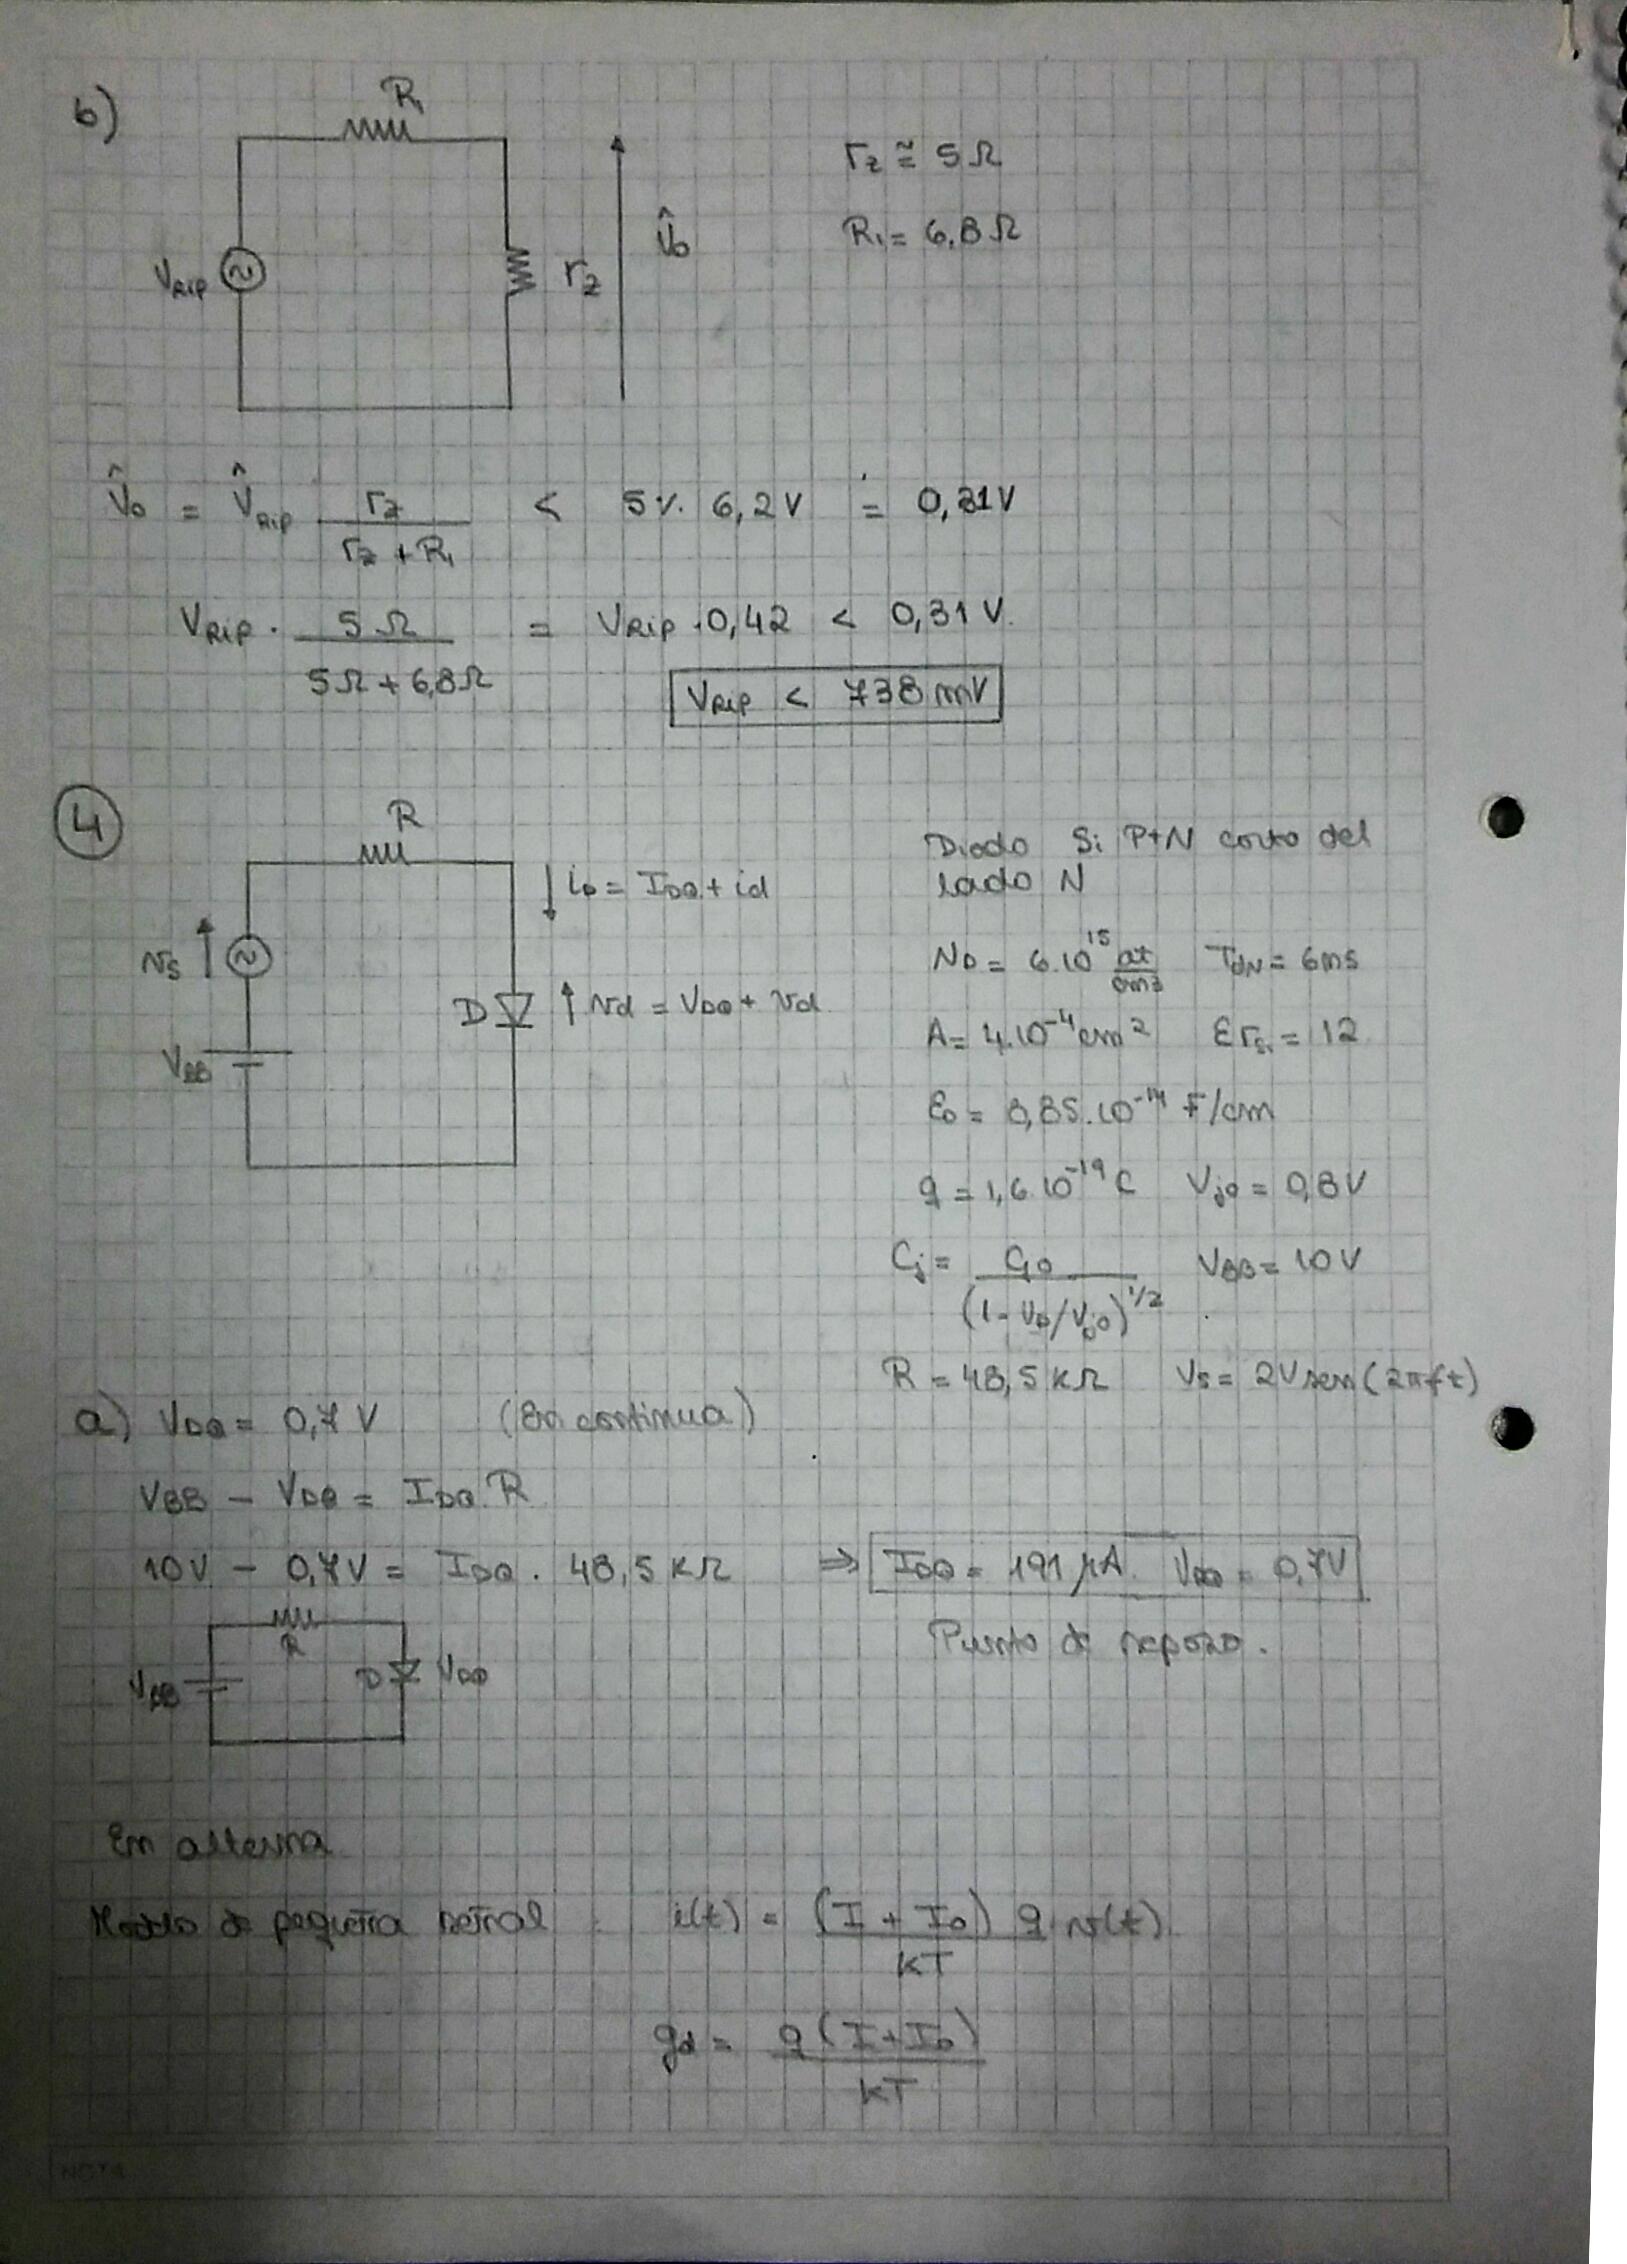 b)
R₁
V_RIP
r_z
V̂o
r_z ≅ 5Ω
R₁ = 6,8Ω
V̂o = V̂_RIP r_z / (r_z + R₁) < 5%. 6,2V = 0,31V
V_RIP . 5Ω / (5Ω + 6,8Ω) = V_RIP . 0,42 < 0,31 V.
V_RIP < 738 mV
4
R
i_D = I_DQ + id
vs
D
vd = V_DQ + vd
V_BB
Diodo Si P+N corto del
lado N
N_D = 6.10¹⁵ at/cm3
A = 4.10⁻⁴ cm² εr_Si = 12
ε₀ = 8,85.10⁻¹⁴ F/cm
q = 1,6.10⁻¹⁹ C V_jo = 0,8V
Cj = Cjo / (1 - V_D/V_jo)^1/2 V_BB = 10V
R = 48,5 KΩ Vs = 2V sen(2πft)
a) V_DQ = 0,7 V (En continua)
V_BB - V_DQ = I_DQ . R
10V - 0,7V = I_DQ . 48,5 KΩ ⇒ I_DQ = 191 μA. V_DQ = 0,7V
Punto de reposo.
R
V_BB
D V_DQ
En alterna
Modelo de pequeña señal i(t) = (I + I₀) q v(t) / KT
gd = q (I + I₀) / KT
NOTA